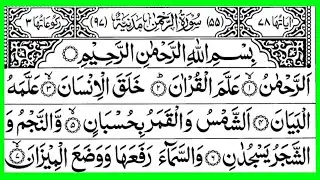 اٰیَاتُهَا ٧٨ (٥٥) سُوْرَةُ الرَّحْمٰنِ مَدَنِیَّةٌ (٩٧) رُكُوْعَاتُهَا ٣
بِسْمِ اللّٰهِ الرَّحْمٰنِ الرَّحِیْمِ
اَلرَّحْمٰنُ ۙ١ عَلَّمَ الْقُرْاٰنَ ؕ٢ خَلَقَ الْاِنْسَانَ ۙ٣ عَلَّمَهُ
الْبَیَانَ ٤ اَلشَّمْسُ وَ الْقَمَرُ بِحُسْبَانٍ ۪٥ وَّ النَّجْمُ وَ
الشَّجَرُ یَسْجُدٰنِ ٦ وَ السَّمَآءَ رَفَعَهَا وَ وَضَعَ الْمِیْزَانَ ۙ٧